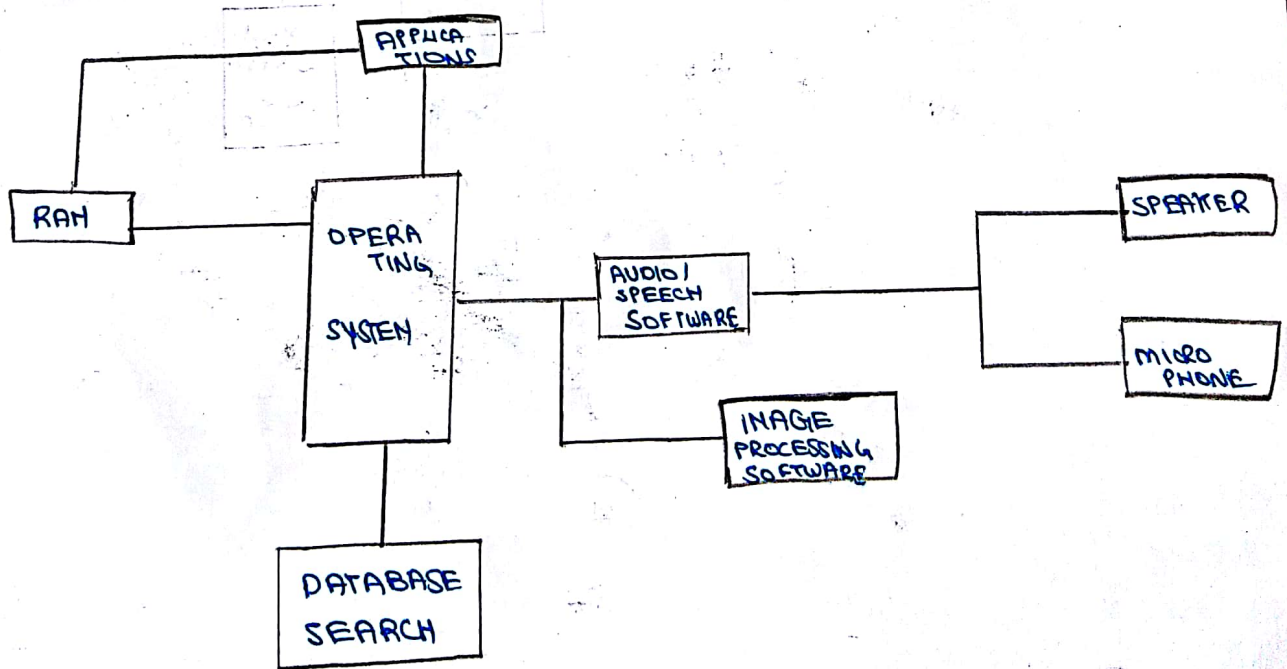 APPLICA
TIONS
RAM
OPERA
TING
SYSTEM
AUDIO/
SPEECH
SOFTWARE
SPEAKER
MICRO
PHONE
IMAGE
PROCESSING
SOFTWARE
DATABASE
SEARCH